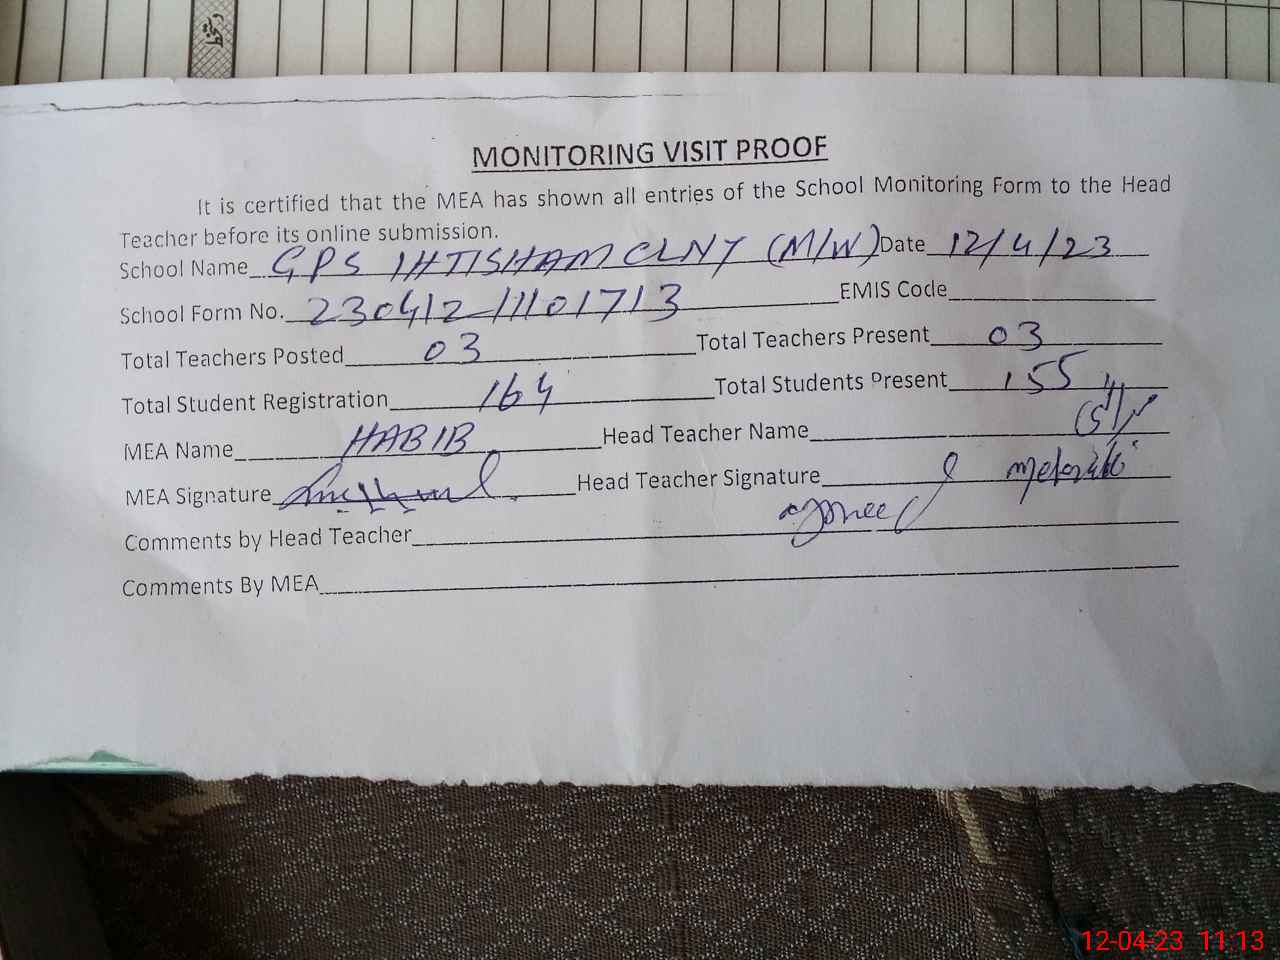 MONITORING VISIT PROOF
It is certified that the MEA has shown all entries of the School Monitoring Form to the Head
Teacher before its online submission.
School Name GPS IHTISHAM CLNY (M/W) Date 12/4/23
School Form No. 230412-1101713 EMIS Code
Total Teachers Posted 03 Total Teachers Present 03
Total Student Registration 164 Total Students Present 155
MEA Name HABIB Head Teacher Name
MEA Signature Head Teacher Signature
Comments by Head Teacher agreed
Comments By MEA
12-04-23 11:13